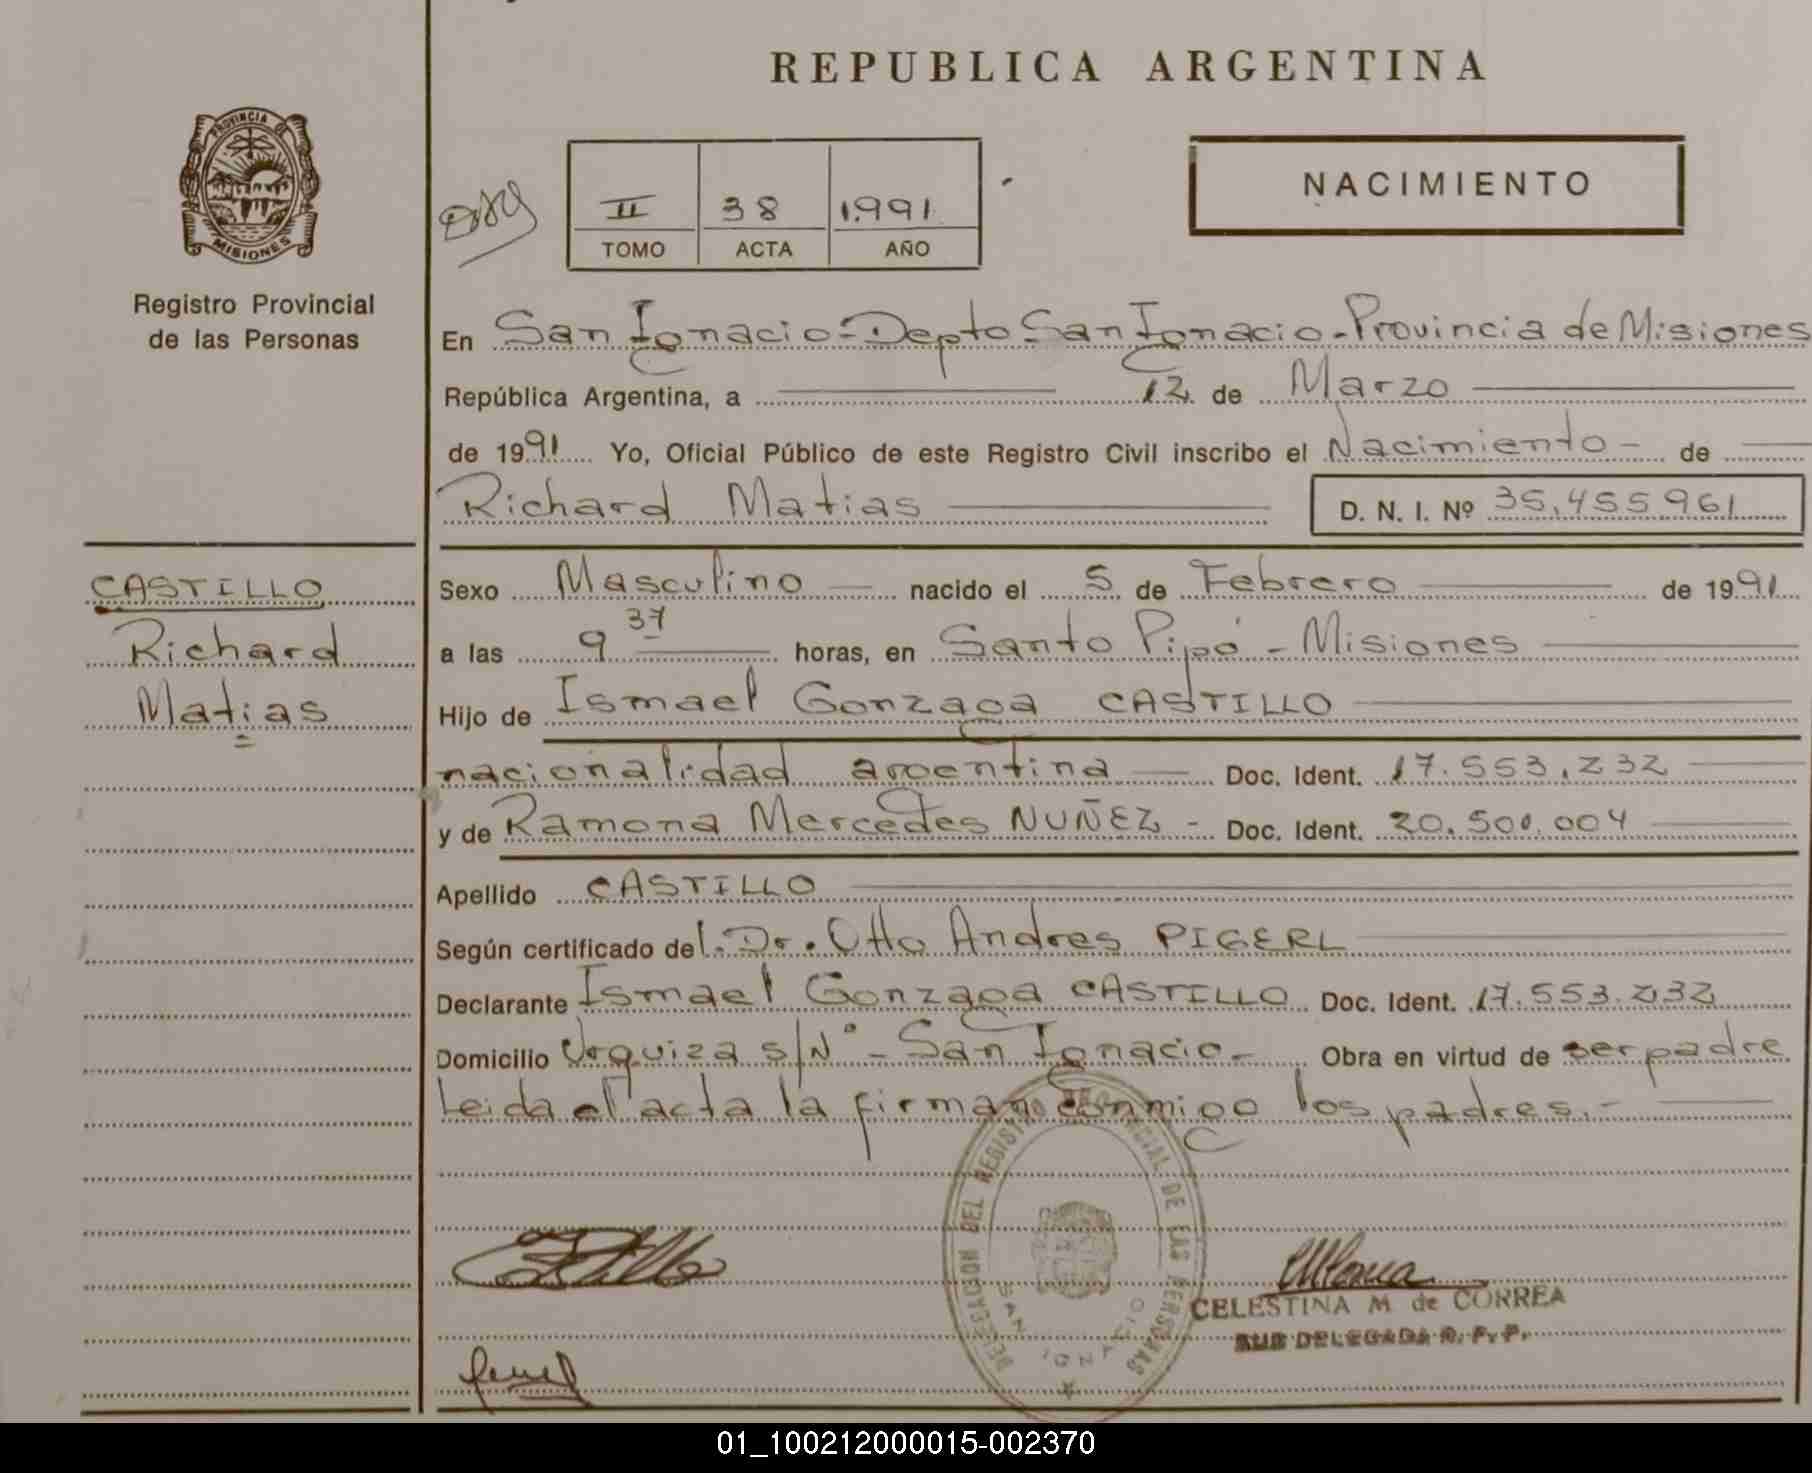 REPUBLICA ARGENTINA
PROVINCIA DE MISIONES
Registro Provincial
de las Personas
II 38 1991
TOMO ACTA AÑO
NACIMIENTO
En San Ignacio - Depto San Ignacio - Provincia de Misiones
República Argentina, a 12 de Marzo
de 1991 Yo, Oficial Público de este Registro Civil inscribo el Nacimiento - de
Richard Matias D. N. I. Nº 35.455.961
CASTILLO
Richard
Matias
Sexo Masculino nacido el 5 de Febrero de 1991
a las 9 37 horas, en Santo Pipó - Misiones
Hijo de Ismael Gonzaga CASTILLO
nacionalidad argentina Doc. Ident. 17.553.232
y de Ramona Mercedes NUÑEZ - Doc. Ident. 20.500.004
Apellido CASTILLO
Según certificado del. Dr. Otto Andres PIGERL
Declarante Ismael Gonzaga CASTILLO Doc. Ident. 17.553.232
Domicilio Urquiza s/N° - San Ignacio - Obra en virtud de ser padre
Leida el acta la firman conmigo los padres. -
DELEGACION DEL REGISTRO PROVINCIAL DE LAS PERSONAS
SAN IGNACIO
CELESTINA M de CORREA
SUB DELEGADA R. P. P.
01_100212000015-002370